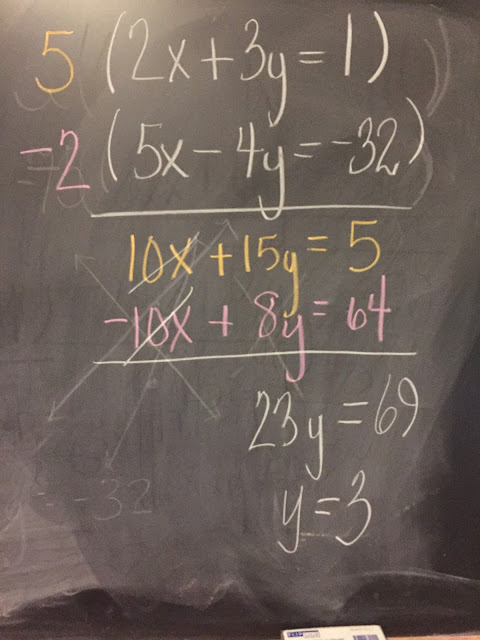 5 (2x+3y=1)
-2 (5x-4y=-32)
10x+15y=5
-10x+8y=64
23y=69
y=3
= -32